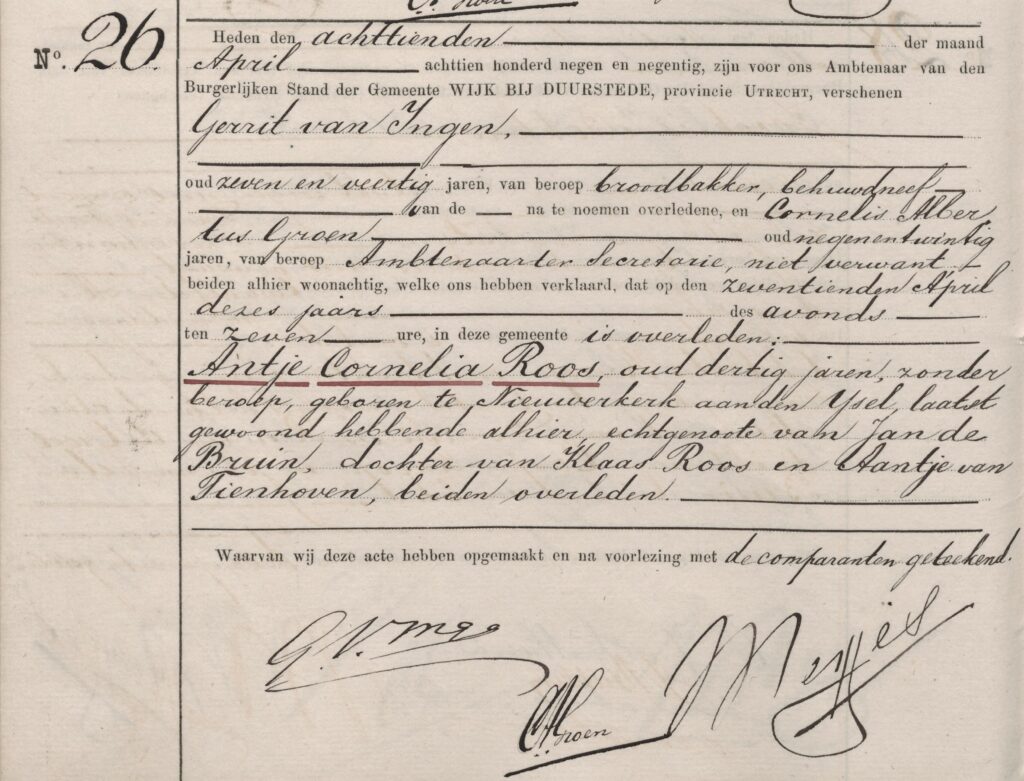 No. 26.
Heden den achttienden der maand
April achttien honderd negen en negentig, zijn voor ons Ambtenaar van den
Burgerlijken Stand der Gemeente WIJK BIJ DUURSTEDE, provincie UTRECHT, verschenen
Gerrit van Ingen,
oud zeven en veertig jaren, van beroep broodbakker, behuwdneef
van de na te noemen overledene, en Cornelis Alber
tus Groen oud negenentwintig
jaren, van beroep Ambtenaar ter Secretarie, niet verwant
beiden alhier woonachtig, welke ons hebben verklaard, dat op den zeventienden April
dezes jaars des avonds
ten zeven ure, in deze gemeente is overleden:
Antje Cornelia Roos, oud dertig jaren, zonder
beroep, geboren te Nieuwerkerk aan den Ysel, laatst
gewoond hebbende alhier, echtgenoote van Jan de
Bruin, dochter van Klaas Roos en Aantje van
Tienhoven, beiden overleden
Waarvan wij deze acte hebben opgemaakt en na voorlezing met de comparanten geteekend.
G. V. Inge
CAGroen